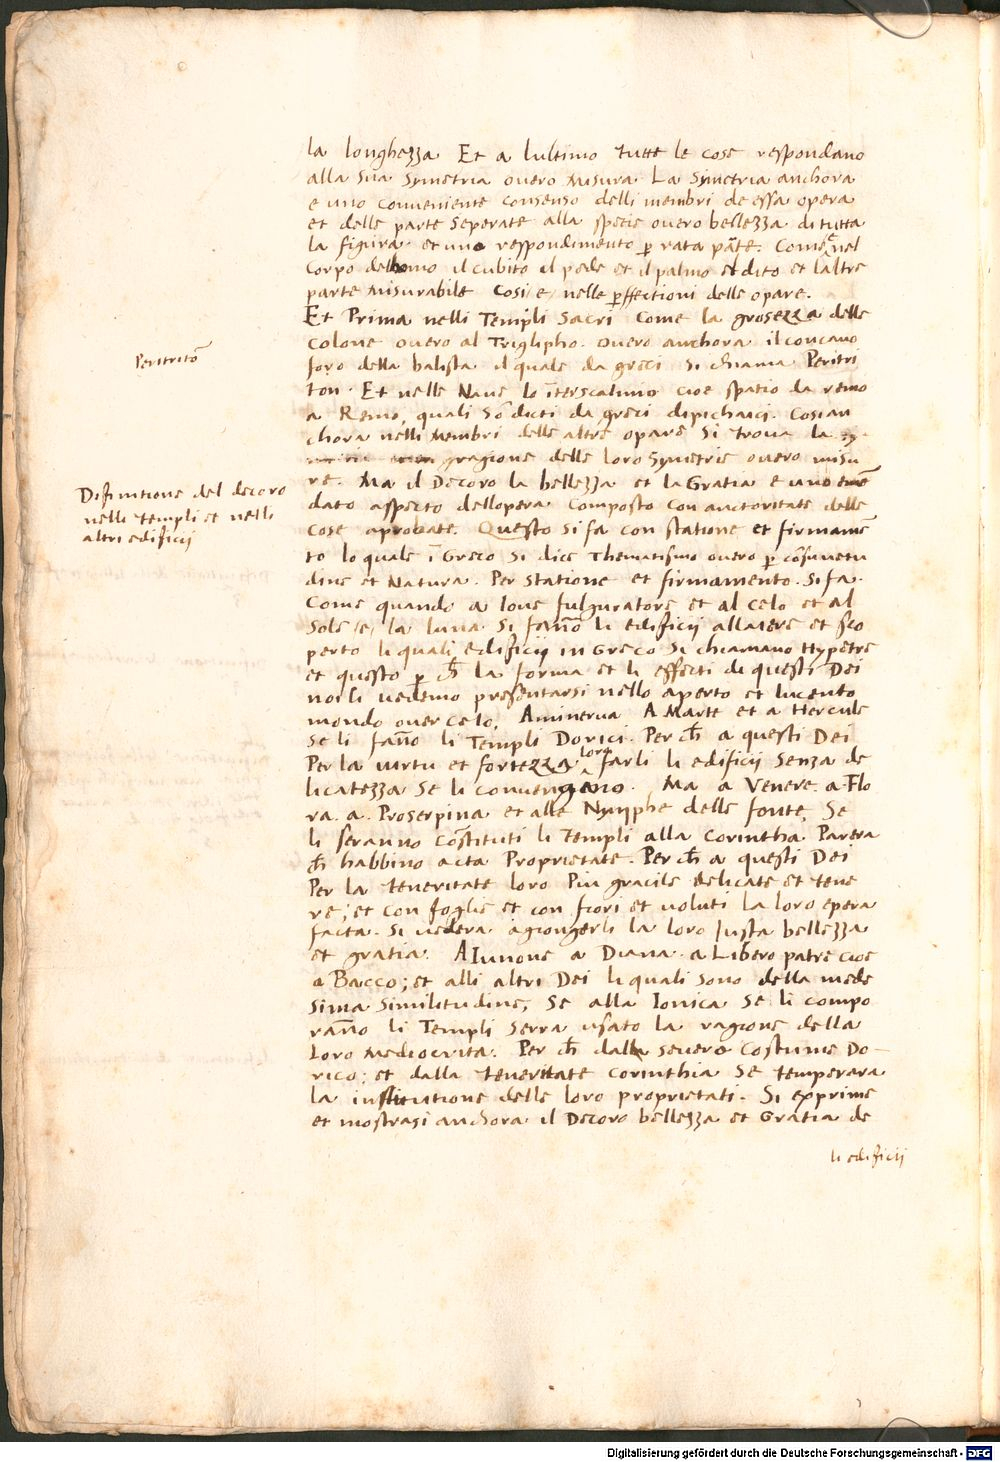 la longhezza Et a lultimo tutte le cose respondano
alla sua Symetria overo Misura La Symetria anchora
e uno conveniente consenso delli membri de essa opera
et delle parte Seperate alla specie overo bellezza di tutta
la figura et uno respondimento p rata pãte. Come nel
Corpo delhomo il cubito il pede et il palmo el dito et laltre
parte Misurabile Cosi e nelle pffectioni delle opare.
Et Prima nelli Templi Sacri Come la grosezza delle
Colone overo al Triglipho. Overo anchora il concavo
foro della balista il quale da greci si chiama Peritri
ton. Et nelle Nave lo ĩterscalmio cioe spatio da remo
a Remo, quali Sõ dicti da greci dipichaici. Cosi an
chora nelli Membri delle altre opare Si trova la
gragione delle loro Symetrie overo misu
re. Ma il Decoro la bellezza et la Gratia e uno emẽ
dato aspecto dellopera Composto con auctoritate delle
cose aprobate. Questo si fa con statione et firmamẽ
to lo quale ĩ Greco Si dice Thematismo overo p cõsuetu
dine et Natura. Per statione et firmamento. Si fa.
Come quando a Iove fulguratore et al celo et al
Sole e la luna Si fanño li edificii allaiere et sco
perto li quali edificii in Greco Si chiamano Hypetre
et questo p ch la forma et li effecti di questi Dei
noi li vedemo presentarsi nello aperto et lucento
mondo over celo. A minerva A Marte et a Hercule
Se li fanño li Templi Dorici. Per ch a questi Dei
Per la virtu et fortezza loro farli li edificii Senza de
licatezza Se li convengano. Ma a Venere. a Flo
ra. a. Proserpina et alle Nymphe delle fonte, Se
li seranno cõstituti li templi alla Corintha Parera
ch habbino acta Proprietate. Per ch a questi Dei
Per la teneritate loro Piu gracile delicate et tene
re; et con foglie et con fiori et voluti la loro opera
facta. Si vedera agiongerli la loro Justa bellezza
et gratia. A Iunone a Diana. a Libero patre cioe
a Bacco; et alli altri Dei li quali sono della mede
sima Similitudine, Se alla Ionica Se li compo
ranño li Templi Serra usato la ragione della
Loro Mediocrita. Per ch dalla Severo Costume Do-
rico; et dalla teneritate Corinthia Se temperara
la institutione delle loro proprietati. Si exprime
et mostrasi anchora il Decoro bellezza et Gratia de
li edificii
Peritritõ
Difinitione del decoro
nelli templi et nelli
altri edificii
Digitalisierung gefördert durch die Deutsche Forschungsgemeinschaft - DFG